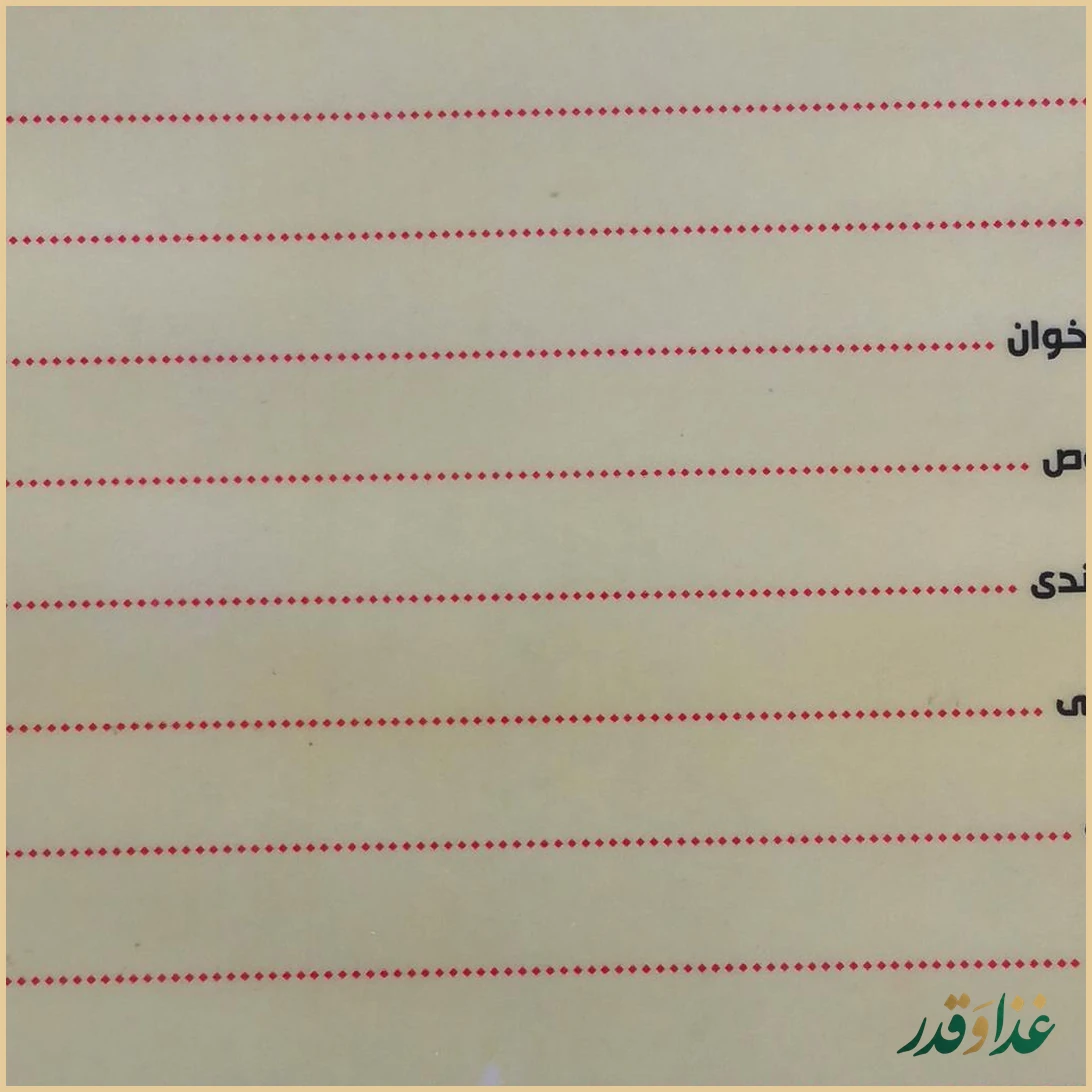 خوان
وص
ندى
ى
غذا وَقدر